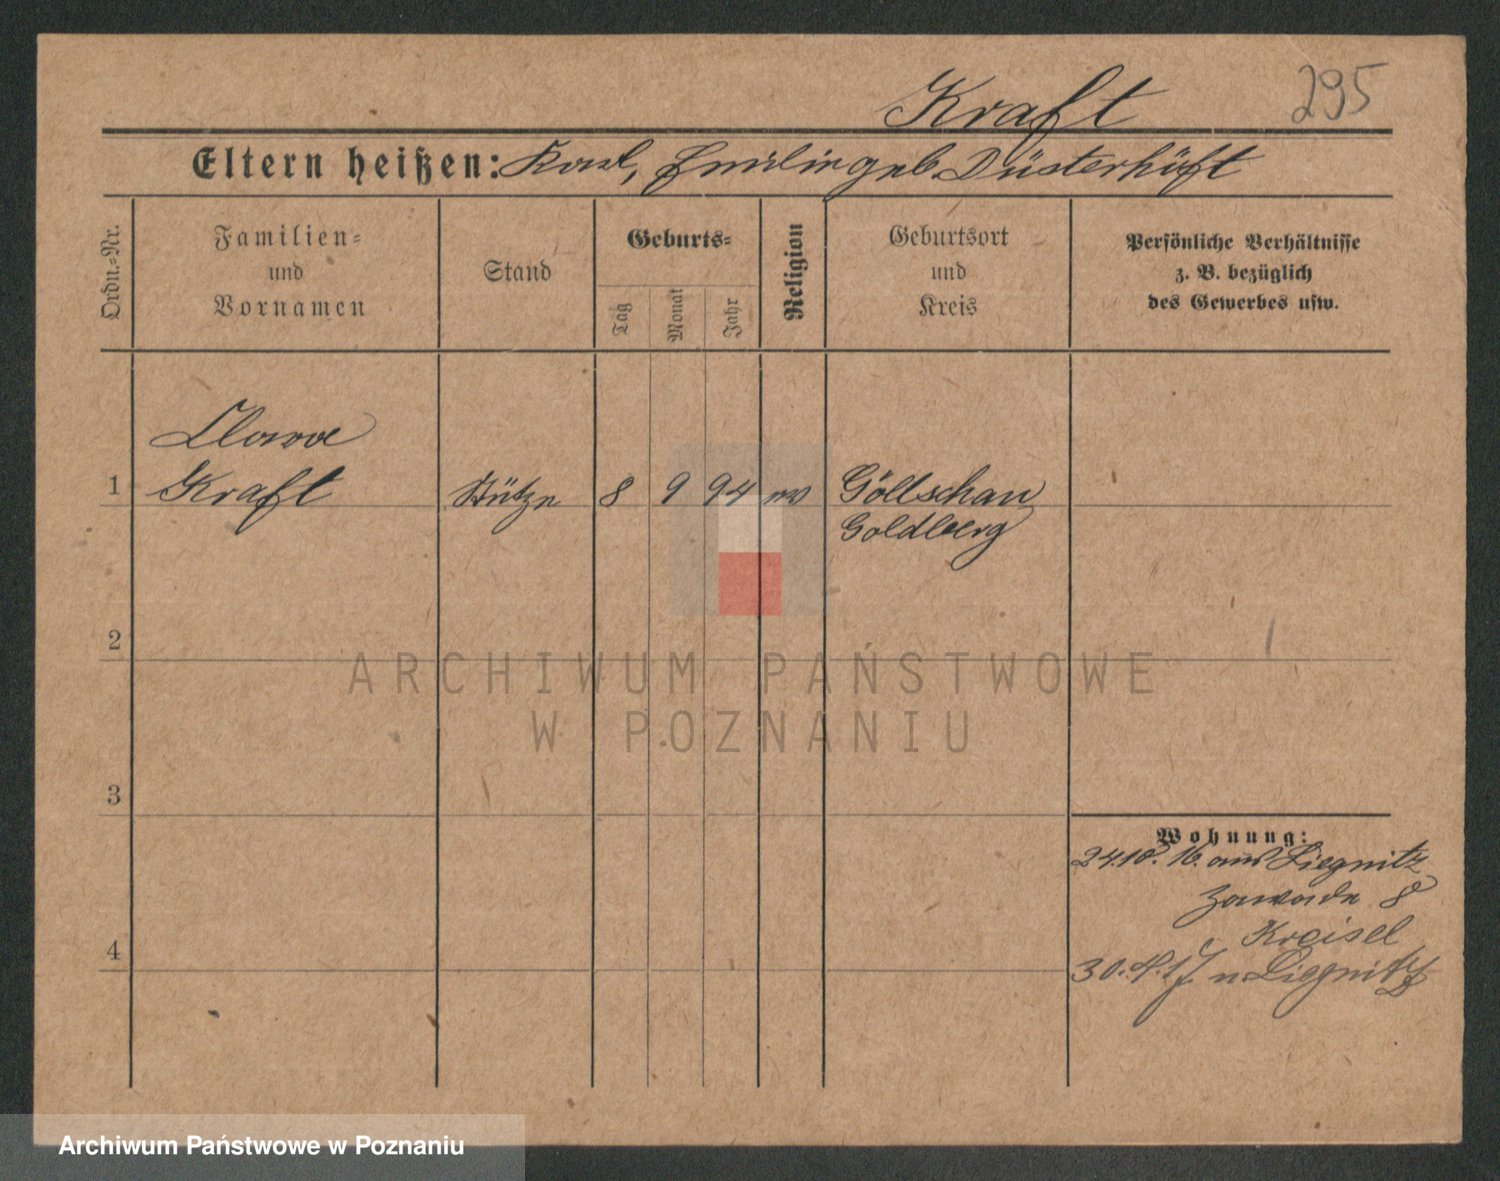 Kraft 295
Eltern heißen: Karl, Emilie geb. Düsterhöft
Ordn.-Nr.
Familien-
und
Vornamen
Stand
Geburts-
Tag
Monat
Jahr
Religion
Geburtsort
und
Kreis
Persönliche Verhältnisse
z. B. bezüglich
des Gewerbes usw.
Klara
1 Kraft Stütze 8 9 94 ev Göllschau
Goldberg
2
3
4
Wohnung:
24.10.16. aus Liegnitz
Zawade 8
Kreisel
30. 17 n Liegnitz
ARCHIWUM PAŃSTWOWE
W POZNANIU
Archiwum Państwowe w Poznaniu